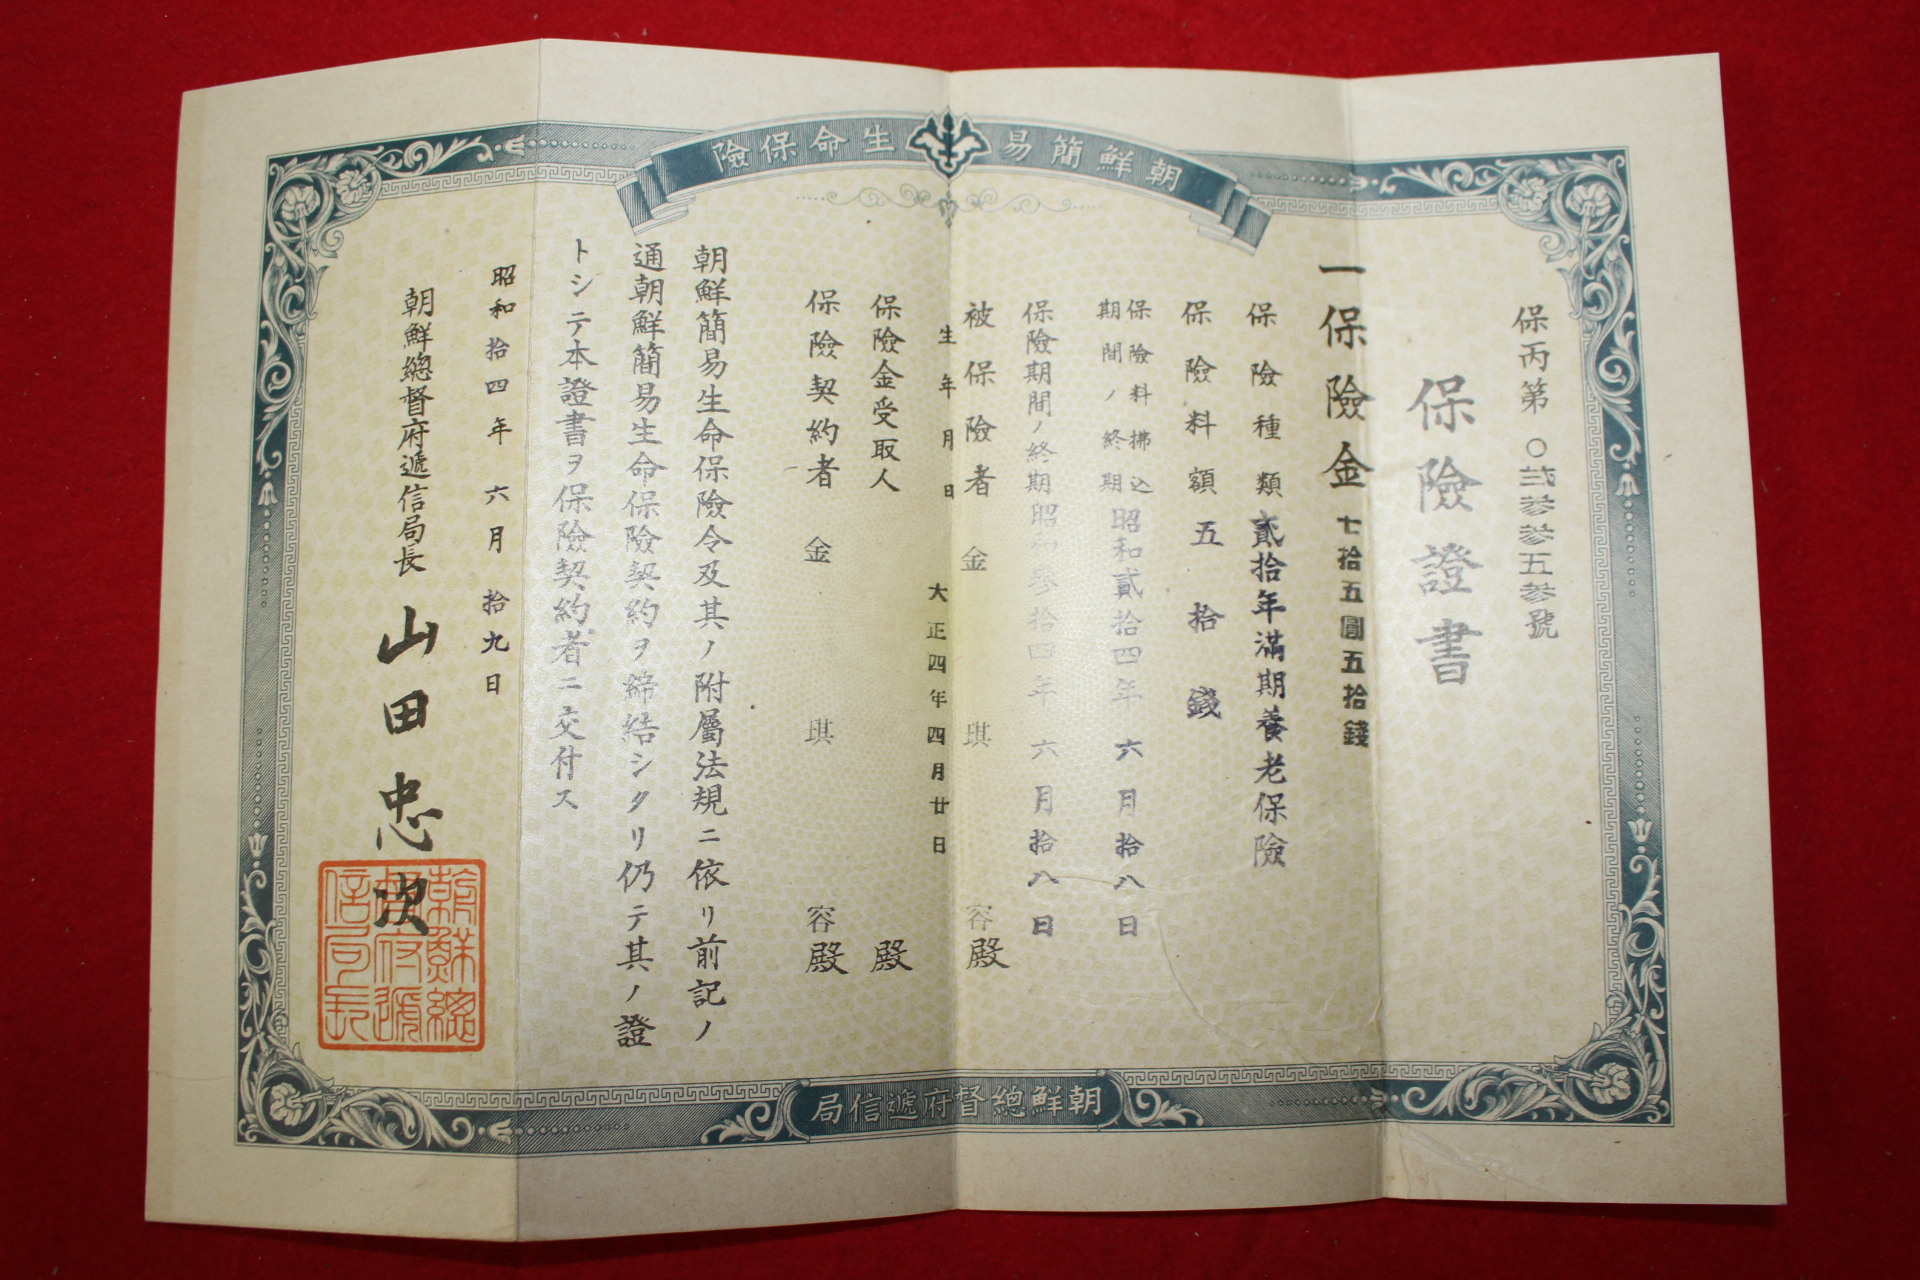 朝鮮簡易生命保險
保丙第〇弐参参五参號
保險證書
一保險金七拾五圓五拾錢
保險種類貳拾年滿期養老保險
保險料額五拾錢
保險料拂込期間ノ終期昭和貳拾四年六月拾八日
保險期間ノ終期昭和參拾四年六月拾八日
被保險者金琪容殿
生年月日大正四年四月廿日
保險金受取人殿
保險契約者金琪容殿
朝鮮簡易生命保險令及其ノ附屬法規ニ依リ前記ノ
通朝鮮簡易生命保險契約ヲ締結シタリ仍テ其ノ證
トシテ本證書ヲ保險契約者ニ交付ス
昭和拾四年六月拾九日
朝鮮總督府遞信局長山田忠次
朝鮮總督府遞信局長
朝鮮總督府遞信局